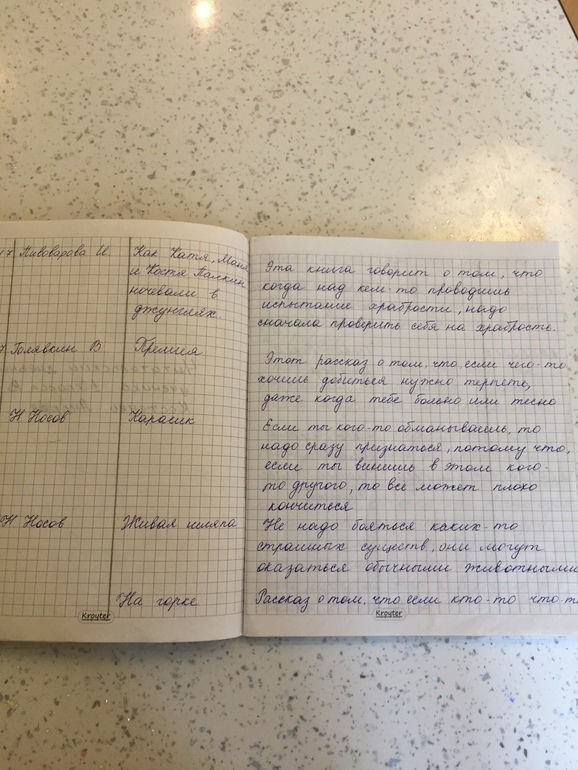 17 Пивоварова И.
Как Катя, Маня
и Костя Палкин
ночевали в
джунглях
Эта книга говорит о том, что
когда над кем-то проводишь
испытание храбрости, надо
сначала проверить себя на храбрость.
7 Голявкин В
Премия
Этот рассказ о том, что, если чего-то
хочешь добиться нужно терпеть,
даже когда тебе больно или тесно
Н Носов
Карасик
Если ты кого-то обманываешь, то
надо сразу признаться, потому что,
если ты винишь в этом кого-
то другого, то все может плохо
кончиться
Н Носов
Живая шляпа
Не надо бояться каких-то
страшных существ, они могут
оказаться обычными животными
На горке
Рассказ о том, что если кто-то что-т
Kroyter
Kroyter